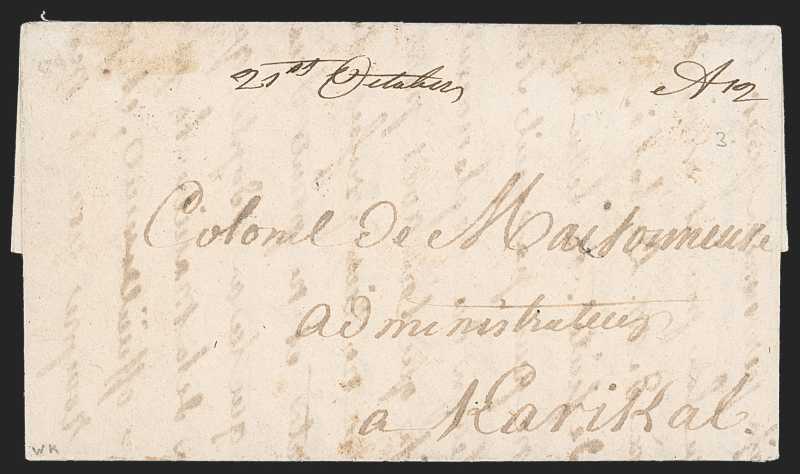 21st October A 12
3
Colonel de Maisonneuve
administrateur
a Karikal.
WK